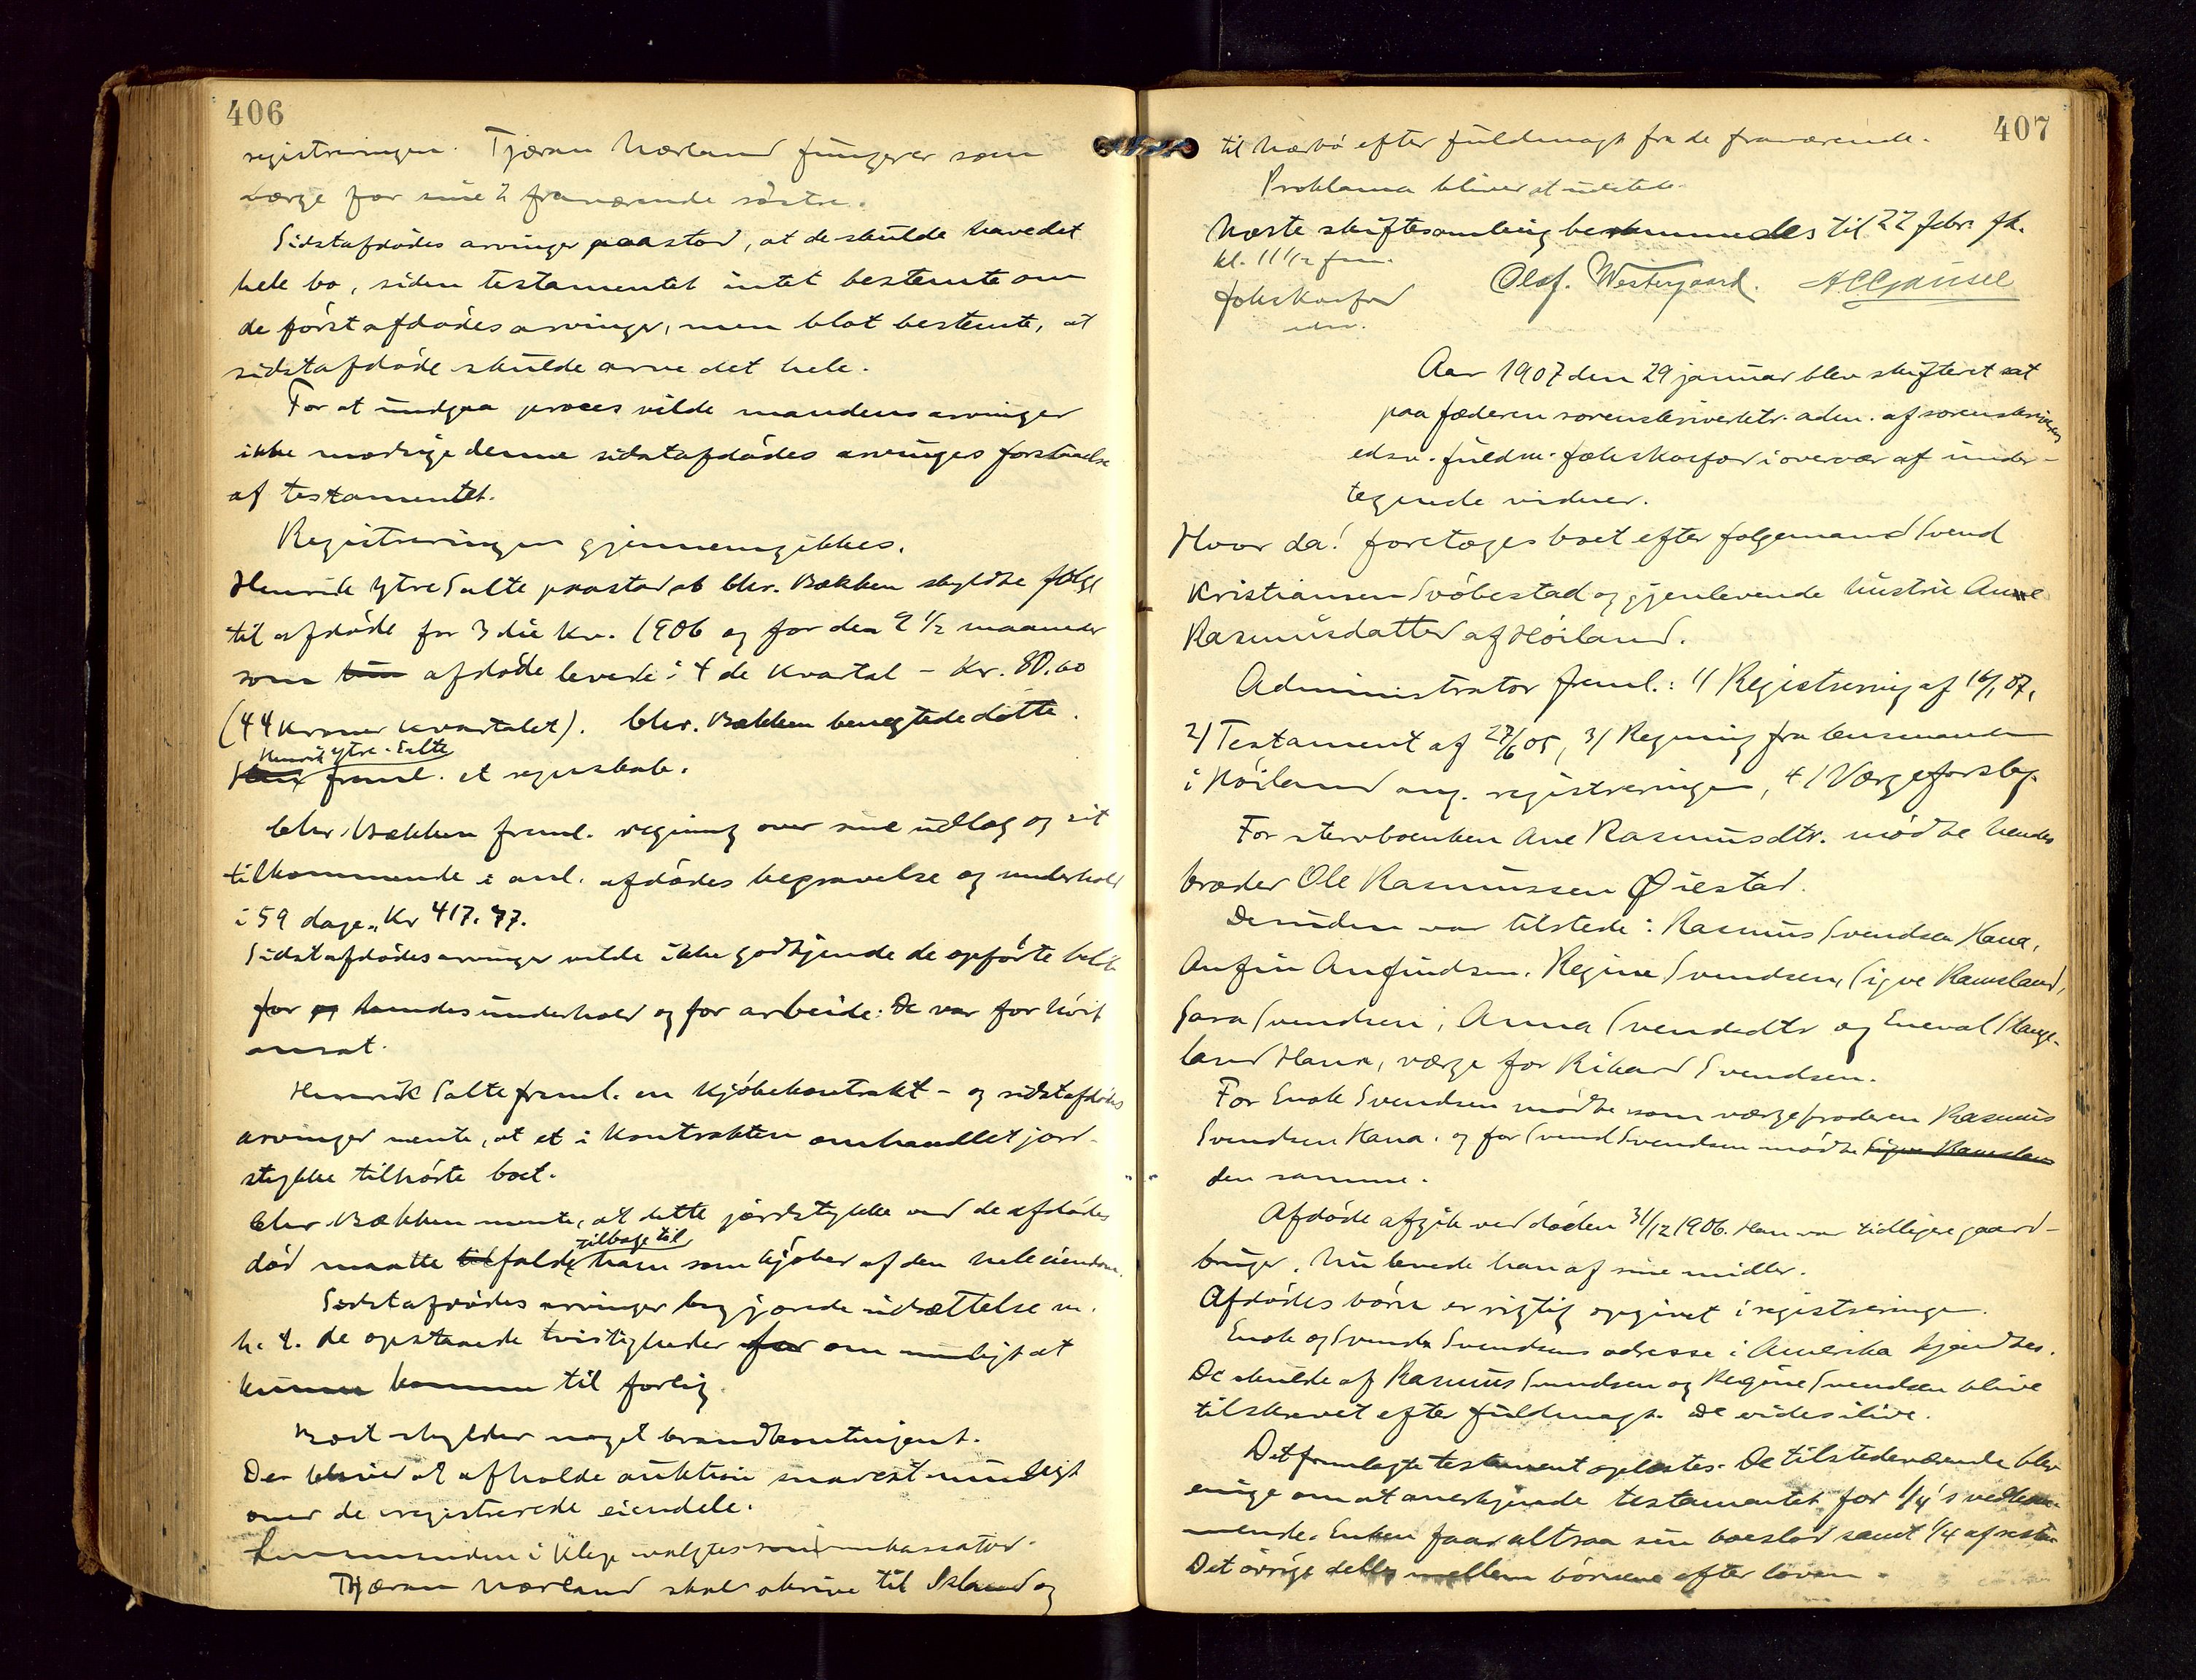 406
registreringen. Tjæran Nærland fungerer som
værge for sine 2 fraværende søstre.
Sidstafdødes arvinger paastod, at de skulde have det
hele bo, siden testamentet intet bestemte om
de først afdødes arvinger, men blot bestemte, at
sidstafdøde skulde arve det hele.
For at undgaa proces vilde mandens arvinger
ikke modsige denne sidstafdødes arvinges forstaaelse
af testamentet.
Registreringen gjennemgikkes.
Henrik Ytre Salte paastod at Chr. Bækken skyldte følge
til afdøde for 3 die kv. 1906 og for den 2 1/2 maaneder
som hun afdøde levede i 4 de kvartal – Kr. 80.60
(44 kroner kvartalet). Chr. Bækken benegtede dette.
Henrik Ytre-Salte
Han freml. et regnskab.
Chr. Bækken freml. regning over sine udlæg og sit
tilkommende i anl. afdødes begravelse og underhold
i 59 dage „ Kr 417.77.
Sidstafdødes arvinger vilde ikke godkjende de opførte beløb
for og hendes underhold og for arbeide: De var for høit
ansat.
Henrik Salte freml. en kjøbekontrakt – og sidstafdødes
arvinger mente, at et i kontrakten omhandlet jord-
stykke tilhørte boet.
Chr Bækken mente, at dette jordstykke ved de afdødes
tilbage til
død maatte tilfalde ham som kjøber af den hele eiendom.
Sidstafdødes arvinger begjærede udsættelse m.
h. t. de opstaaede tvistigheder for om muligt at
kunne komme til forlig.
Boet skylder noget brandkontingent.
Der bliver at afholde auktion snarest muligt
over de registrerede eiendele.
Lensmanden i Klep valgtes som inkassator.
Tjæran Nærland skal skrive til Island og
407
til Nærbø efter fuldmagt fra de fraværende.
Proklama bliver at udstede.
Næste skiftesamling bestemmedes til 22 febr. fk.
kl. 11 1/2 fm.
Olaf. Westergaard. A C Gausel
Aar 1907 den 29 januar blev skifteret sat
paa Jæderen sorenskriverktr. adm. af sorenskriverens
edsv. fuldm. i overvær af under-
tegnede vidner.
Hvor da! foretoges boet efter folgemand Svend
Kristiansen Svøbestad og gjenlevende hustru Anne
Rasmusdatter af Høiland.
Administrator freml.: 1) Registrering af 16/1 07,
2) Testament af 27/6 05, 3) Regning fra lensmanden
i Høiland ang. registreringen, 4) Værgeforslag.
For stervboenken Ane Rasmusdtr. mødte hendes
broder Ole Rasmussen Øiestad.
Desuden var tilstede: Rasmus Svendsen Hana,
Anfin Anfindsen, Regine Svendsen, Sigve Ramsland,
Sara Svendsen, Anna Svendsdtr og Eneval Stange-
land Hana, værge for Rikard Svendsen.
For Enok Svendsen mødte som værge broderen Rasmus
Svendsen Hana. og for Svend Svendsen mødte Sigve Ramsland
den samme.
Afdøde afgik ved døden 31/12 1906. Han var tidligere gaard-
bruger. Nu levede han af sine midler.
Afdødes børn er rigtig opgivet i registreringen.
Enok og Svend Svendsens adresse i Amerika kjendtes.
De skulde af Rasmus Svendsen og Regine Svendsen blive
tilskrevet efter fuldmagt. De vides ilive.
Det fremlagte testament oplæstes. De tilstedeværende blev
enige om at anerkjende testamentet for 1/4's vedkom-
mende. Enken faar altsaa sin boeslod samt 1/4 af resten.
Det øvrige deles mellem børnene efter loven.